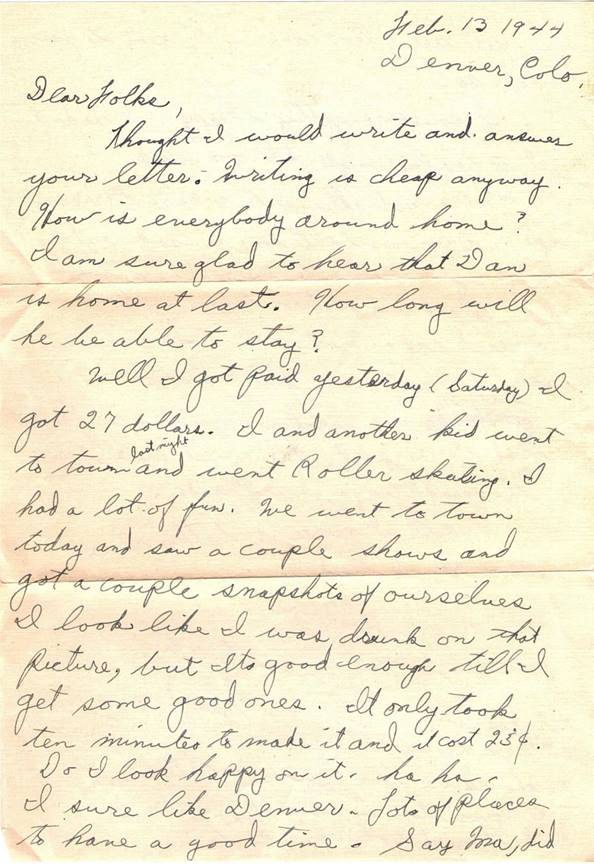 Feb. 13 1944
Denver, Colo.
Dear Folks,
Thought I would write and answer
your letter. Writing is cheap anyway.
How is everybody around home?
I am sure glad to hear that Dan
is home at last. How long will
he be able to stay?
Well I got paid yesterday (Saturday) I
got 27 dollars. I and another kid went
to town last night and went Roller skating. I
had a lot of fun. We went to town
today and saw a couple shows and
got a couple snapshots of ourselves
I look like I was drunk on that
picture, but Its good enough till I
get some good ones. It only took
ten minutes to made it and it cost 25¢.
Do I look happy on it. ha ha.
I sure like Denver. Lots of places
to have a good time. Say Ma, did